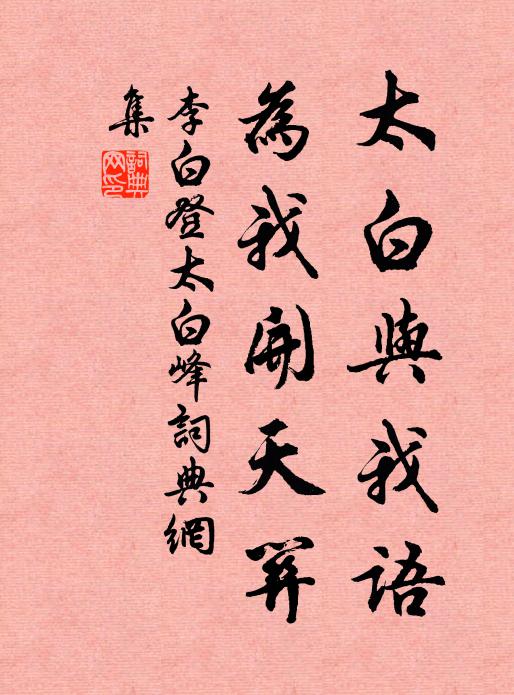 太白與我語
為我開天關
李白登太白峰詞典網
集
詞典
网印